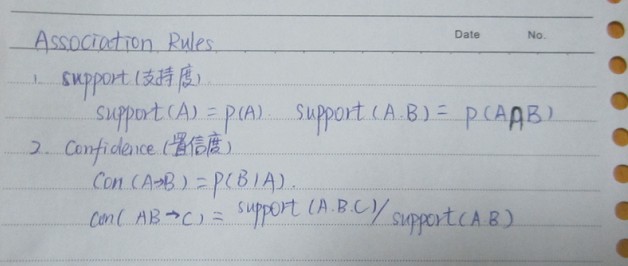 Date No.
Association Rules
1. support (支持度)
support (A) = P(A). support (A.B) = P(A∩B)
2. Confidence (置信度)
Con (A→B) = P(B|A).
Con( AB→C) = support (A.B.C) / support (A.B)